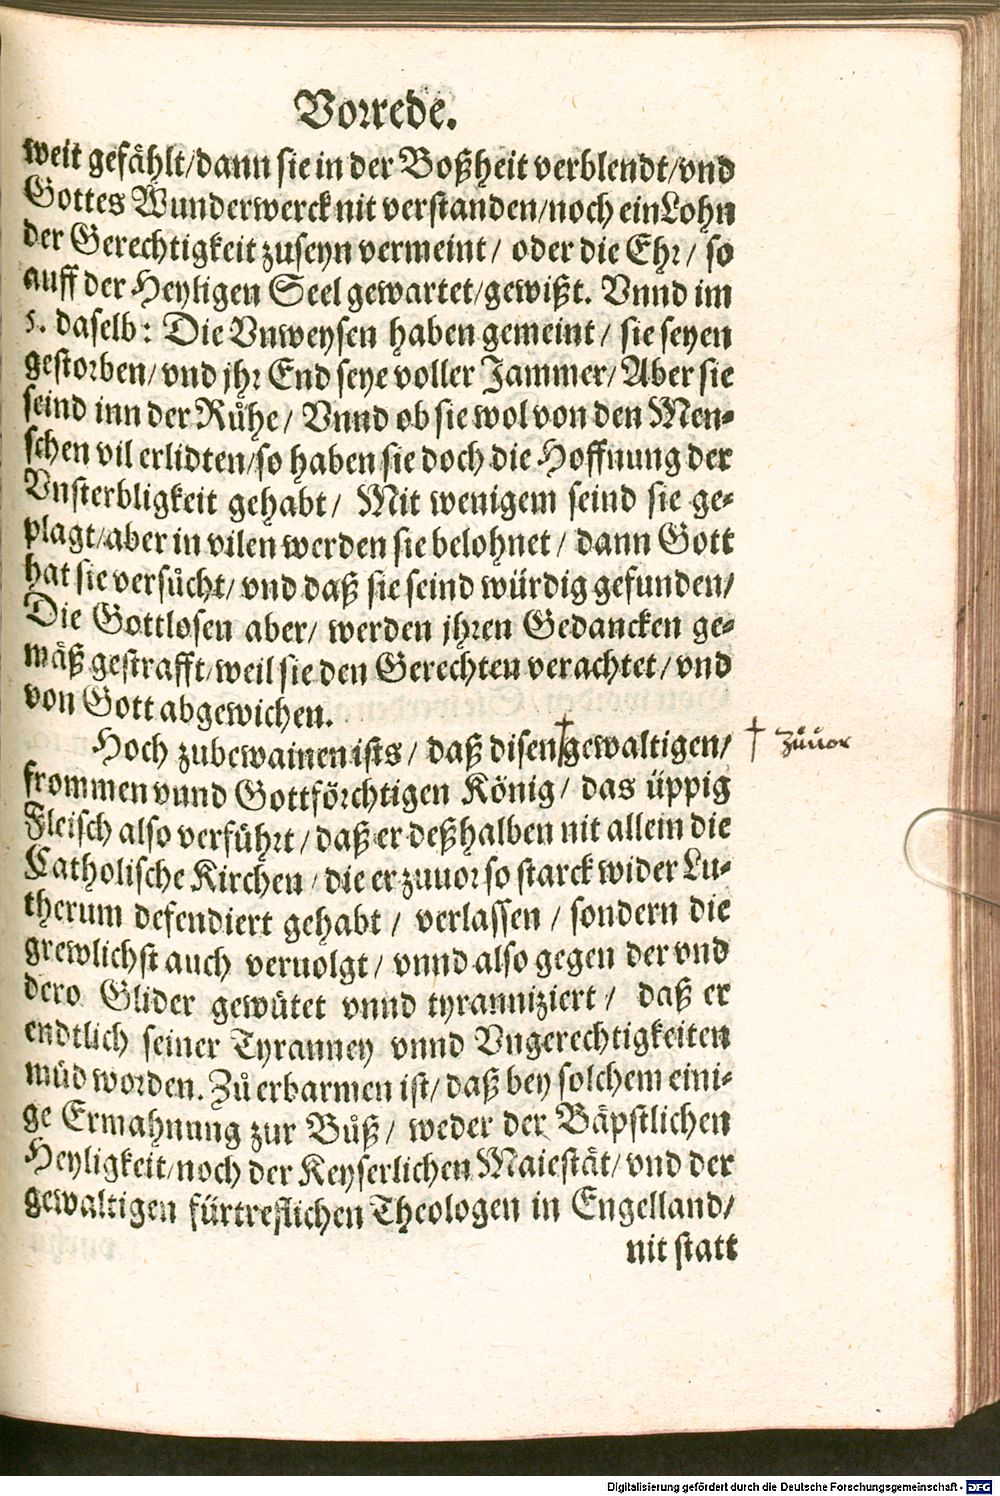 Vorrede.
weit gefählt/dann sie in der Boßheit verblendt/vnd
Gottes Wunderwerck nit verstanden/noch ein Lohn
der Gerechtigkeit zuseyn vermeint/ oder die Ehr/ so
auff der Heyligen Seel gewartet/gewißt. Vnnd im
5. daselb: Die Vnweysen haben gemeint/ sie seyen
gestorben/ vnd jhr End seye voller Jammer/ Aber sie
seind inn der Růhe/ Vnnd ob sie wol von den Men-
schen vil erlidten/so haben sie doch die Hoffnung der
Vnsterbligkeit gehabt/ Mit wenigem seind sie ge-
plagt/aber in vilen werden sie belohnet/ dann Gott
hat sie versůcht/ vnd daß sie seind würdig gefunden/
Die Gottlosen aber/ werden jhren Gedancken ge-
mäß gestrafft/weil sie den Gerechten verachtet/ vnd
von Gott abgewichen.
Hoch zubewainen ists/ daß disen † gewaltigen/ † Zůuor
frommen vnnd Gottförchtigen König/ das üppig
Fleisch also verführt/ daß er deßhalben nit allein die
Catholische Kirchen/ die er zuuor so starck wider Lu-
therum defendiert gehabt/ verlassen/ sondern die
grewlichst auch veruolgt/ vnnd also gegen der vnd
dero Glider gewütet vnnd tyranniziert/ daß er
endtlich seiner Tyranney vnnd Vngerechtigkeiten
müd worden. Zů erbarmen ist/ daß bey solchem eini-
ge Ermahnung zur Bůß/ weder der Bäpstlichen
Heyligkeit/noch der Keyserlichen Maiestät/ vnd der
gewaltigen fürtreflichen Theologen in Engelland/
nit statt
Digitalisierung gefördert durch die Deutsche Forschungsgemeinschaft - DFG